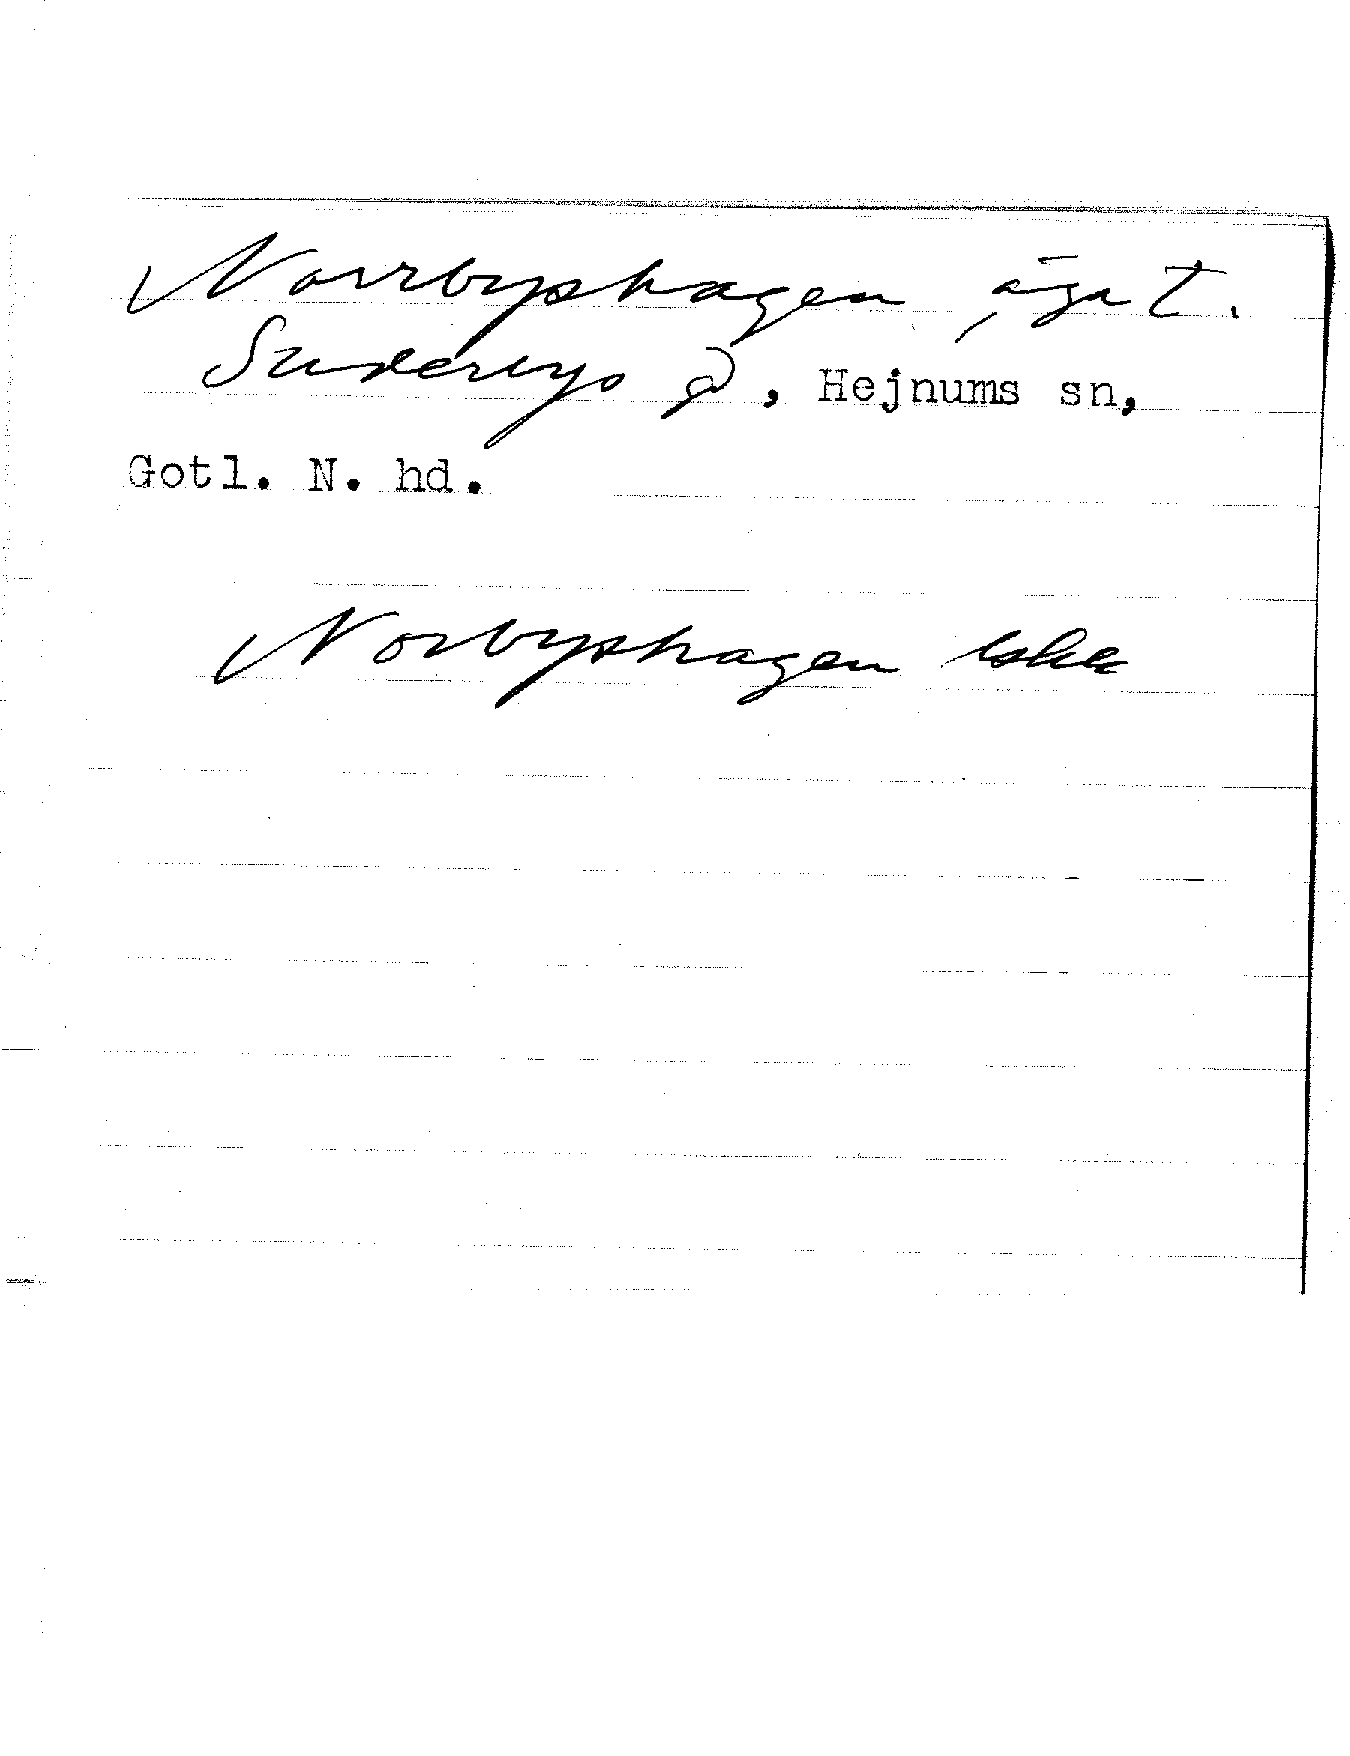 Norrbyshagen, äga t.
Suderbys gd, Hejnums sn,
Gotl. N. hd.
Norbyshagen lska